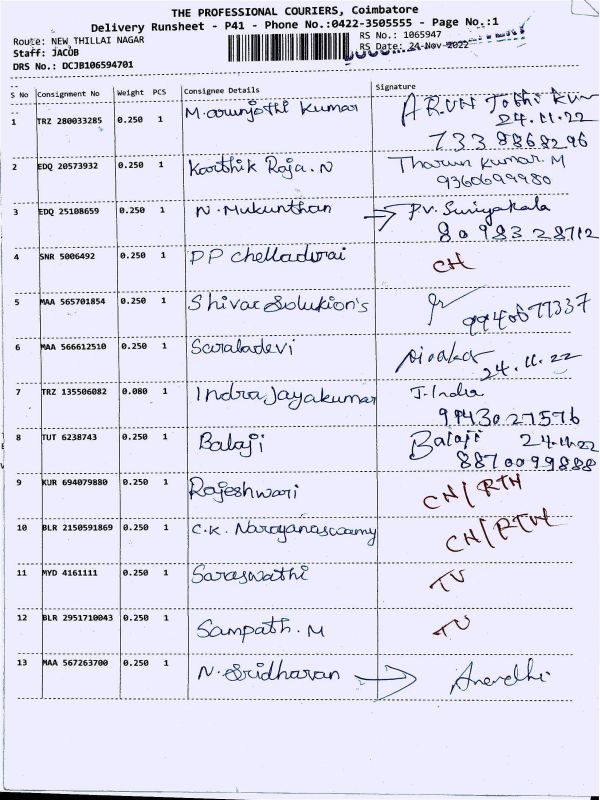 THE PROFESSIONAL COURIERS, Coimbatore
Delivery Runsheet - P41 - Phone No.:0422-3505555 - Page No.:1
Route: NEW THILLAI NAGAR
Staff: JACOB
DRS No.: DCJB106594701
RS No.: 1065947
RS Date: 24-Nov-2022
S No Consignment No Weight PCS Consignee Details Signature
1 TRZ 280033285 0.250 1 M. arunjothi kumar ARUN Jothi Kum
24.11.22
733 8868296
2 EDQ 20573932 0.250 1 Karthik Raja. N Tharun Kumar. M
9360699980
3 EDQ 25108659 0.250 1 N. Mukunthan → P.V. Suriyakala
80983 28712
4 SNR 5006492 0.250 1 PP chelladurai CH
5 MAA 565701854 0.250 1 Shivar Solukion's 9940677337
6 MAA 566612510 0.250 1 Saraladevi
24.11.22
7 TRZ 135506082 0.080 1 Indra Jayakumar J. India
99430 27576
8 TUT 6238743 0.250 1 Balaji Balaji 24.11.22
8870099888
9 KUR 694079880 0.250 1 Rajeshwari CH/RTH
10 BLR 2150591869 0.250 1 C.K. Narayanaswamy CH/RTH
11 MYD 4161111 0.250 1 Saraswathi TV
12 BLR 2951710043 0.250 1 Sampath. M TV
13 MAA 567263700 0.250 1 N. Sridharan → Anandhi